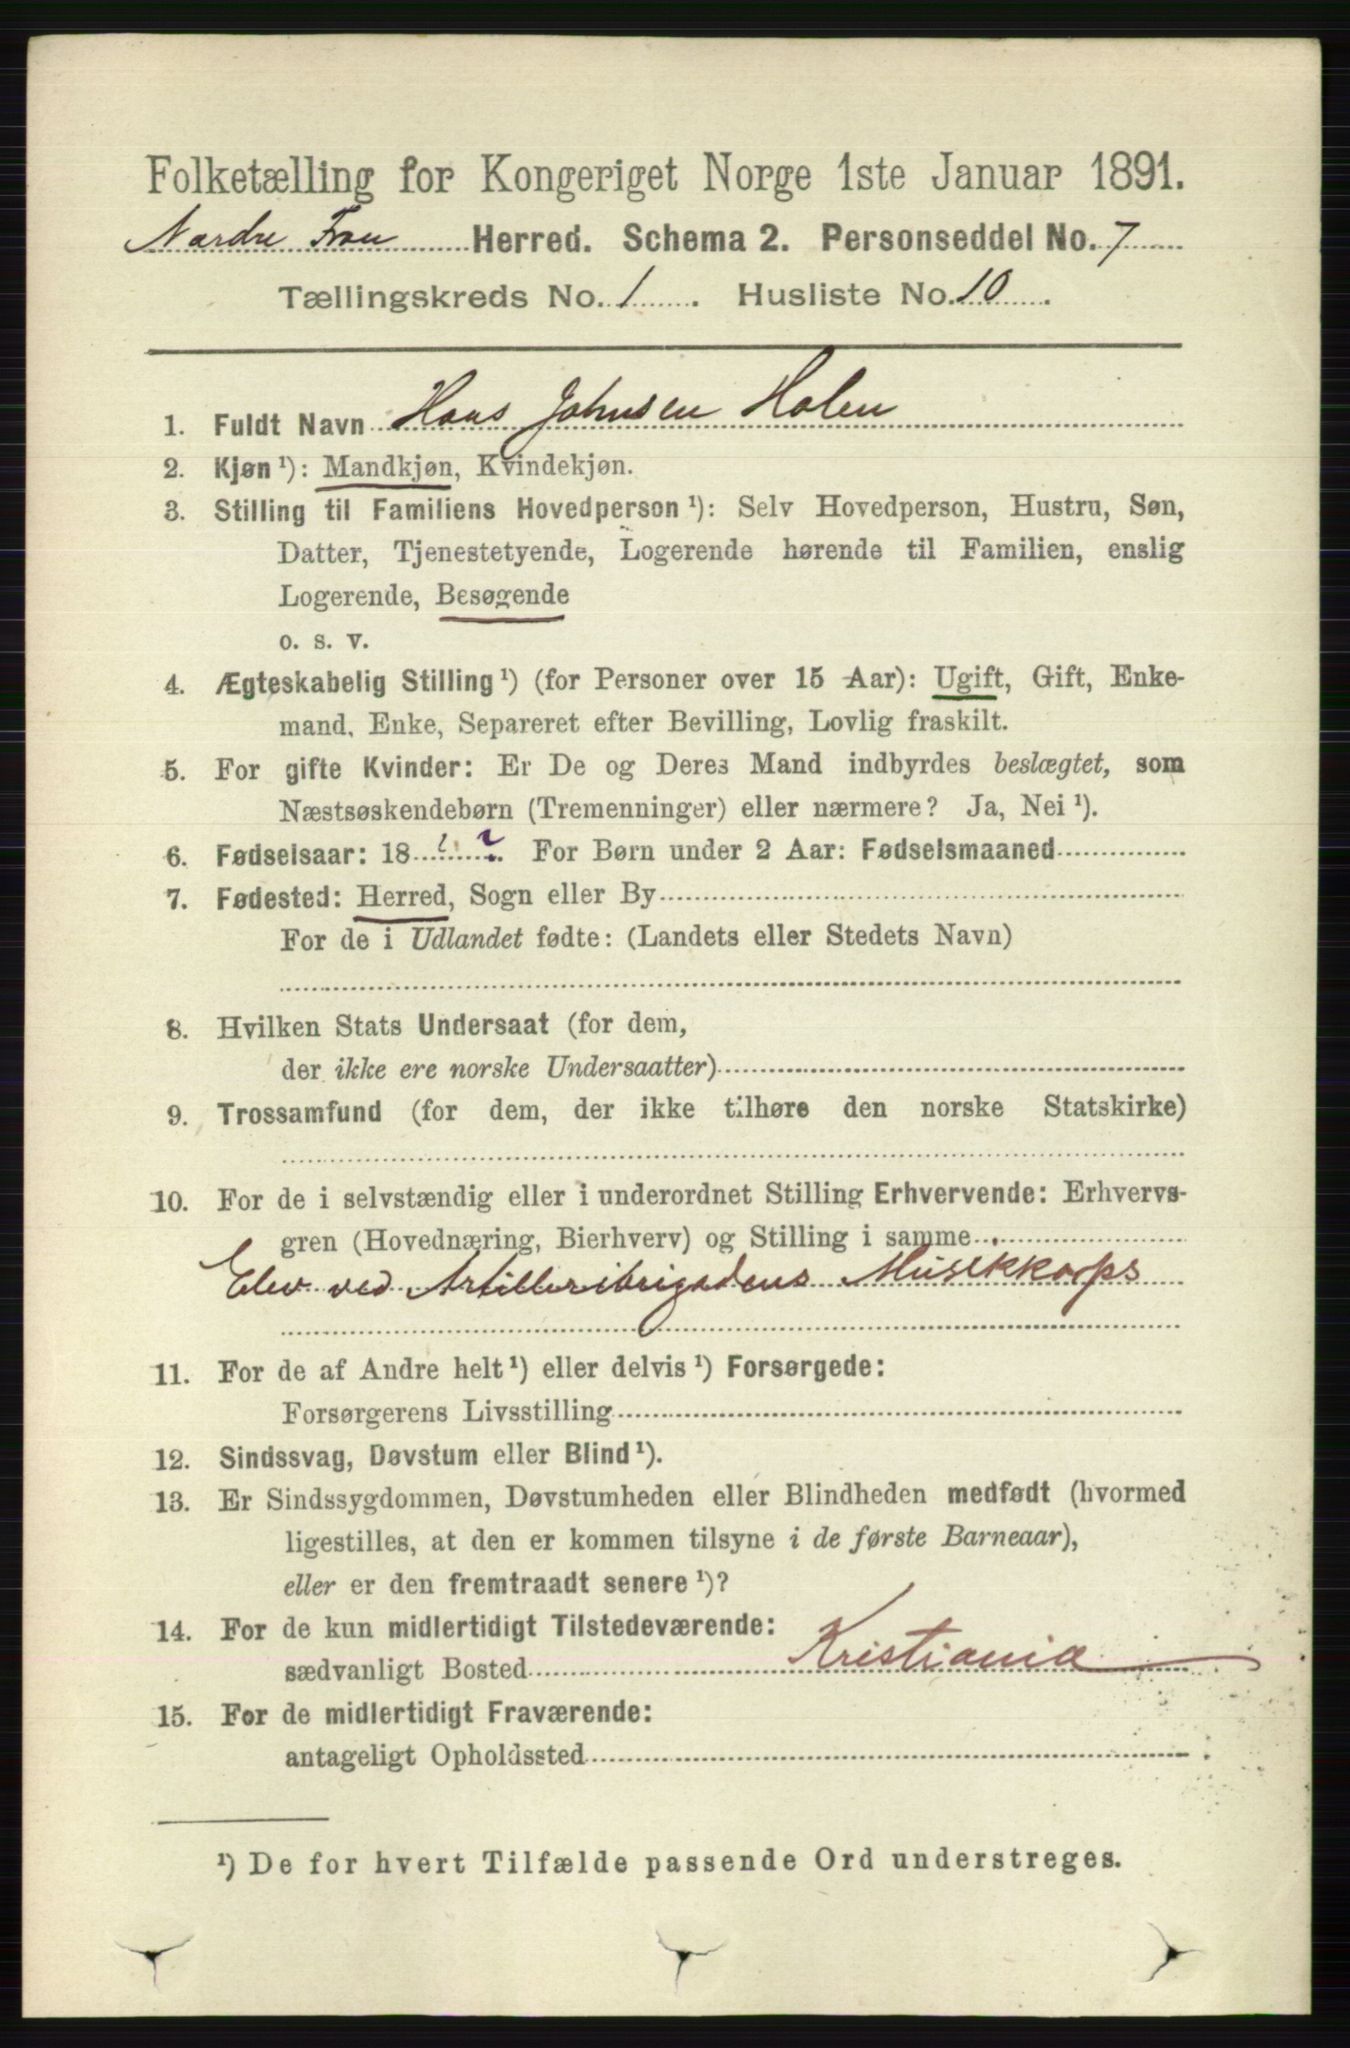 Folketælling for Kongeriget Norge 1ste Januar 1891.
Nordre Fron Herred. Schema 2. Personseddel No. 7
Tællingskreds No. 1. Husliste No. 10.
1. Fuldt Navn Hans Johnsen Holen
2. Kjøn ¹): Mandkjøn, Kvindekjøn.
3. Stilling til Familiens Hovedperson ¹): Selv Hovedperson, Hustru, Søn,
Datter, Tjenestetyende, Logerende hørende til Familien, enslig
Logerende, Besøgende
o. s. v.
4. Ægteskabelig Stilling ¹) (for Personer over 15 Aar): Ugift, Gift, Enke-
mand, Enke, Separeret efter Bevilling, Lovlig fraskilt.
5. For gifte Kvinder: Er De og Deres Mand indbyrdes beslægtet, som
Næstsøskendebørn (Tremenninger) eller nærmere? Ja, Nei ¹).
6. Fødselsaar: 18 ? ?. For Børn under 2 Aar: Fødselsmaaned
7. Fødested: Herred, Sogn eller By
For de i Udlandet fødte: (Landets eller Stedets Navn)
8. Hvilken Stats Undersaat (for dem,
der ikke ere norske Undersaatter)
9. Trossamfund (for dem, der ikke tilhøre den norske Statskirke)
10. For de i selvstændig eller i underordnet Stilling Erhvervende: Erhvervs-
gren (Hovednæring, Bierhverv) og Stilling i samme
Elev ved Artilleribrigadens Musikkorps
11. For de af Andre helt ¹) eller delvis ¹) Forsørgede:
Forsørgerens Livsstilling
12. Sindssvag, Døvstum eller Blind ¹).
13. Er Sindssygdommen, Døvstumheden eller Blindheden medfødt (hvormed
ligestilles, at den er kommen tilsyne i de første Barneaar),
eller er den fremtraadt senere ¹)?
14. For de kun midlertidigt Tilstedeværende:
sædvanligt Bosted Kristiania
15. For de midlertidigt Fraværende:
antageligt Opholdssted
¹) De for hvert Tilfælde passende Ord understreges.